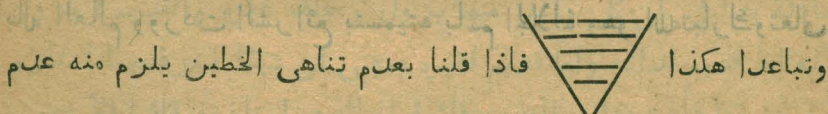 وتباعدا هكذا فاذا قلنا بعدم تناهى الخطين يلزم منه عدم